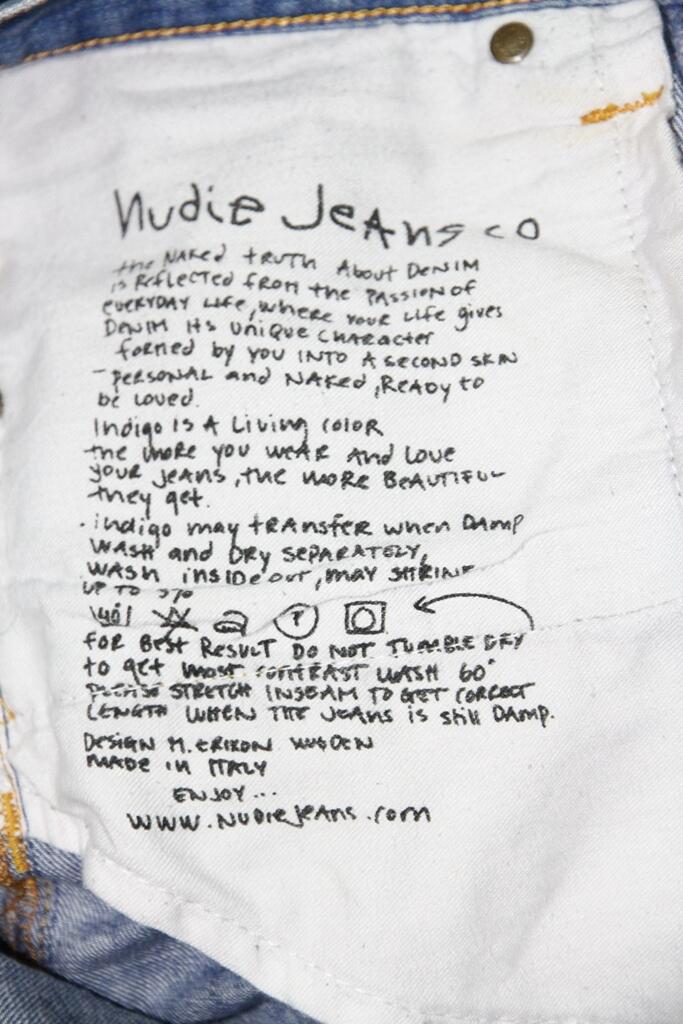 Nudie Jeans co
the NAKed tRUTH About DeNIM
is Reflected from the PASSION of
eveRYDAY Life, where YOUR Life gives
DENIM its UNIQUE CHARACTER
formed by YOU INTO A SECOND SKIN
- PERSONAL and NAKed, READY to
be Loved.
Indigo IS A Living COLOR
the more YOU WEAR AND LOVE
YOUR JEANS, the MORE BEAUTIFUL
they get.
. indigo may tRANSFER when DAMP
WASH and DRY SEPARATELY,
WASH inside out, may SHRINK
UP TO
40
P
FOR BEST RESULT DO NOT TUMBLE DRY
to get most CONTRAST WASH 60°
PLEASE STRETCH INSEAM TO GET CORRECT
LENGTH WHEN THE JEANS is still DAMP.
DESIGN M. ERIXON
MADE IN ITALY
ENJOY...
WWW.NUDIEJEANS.COM